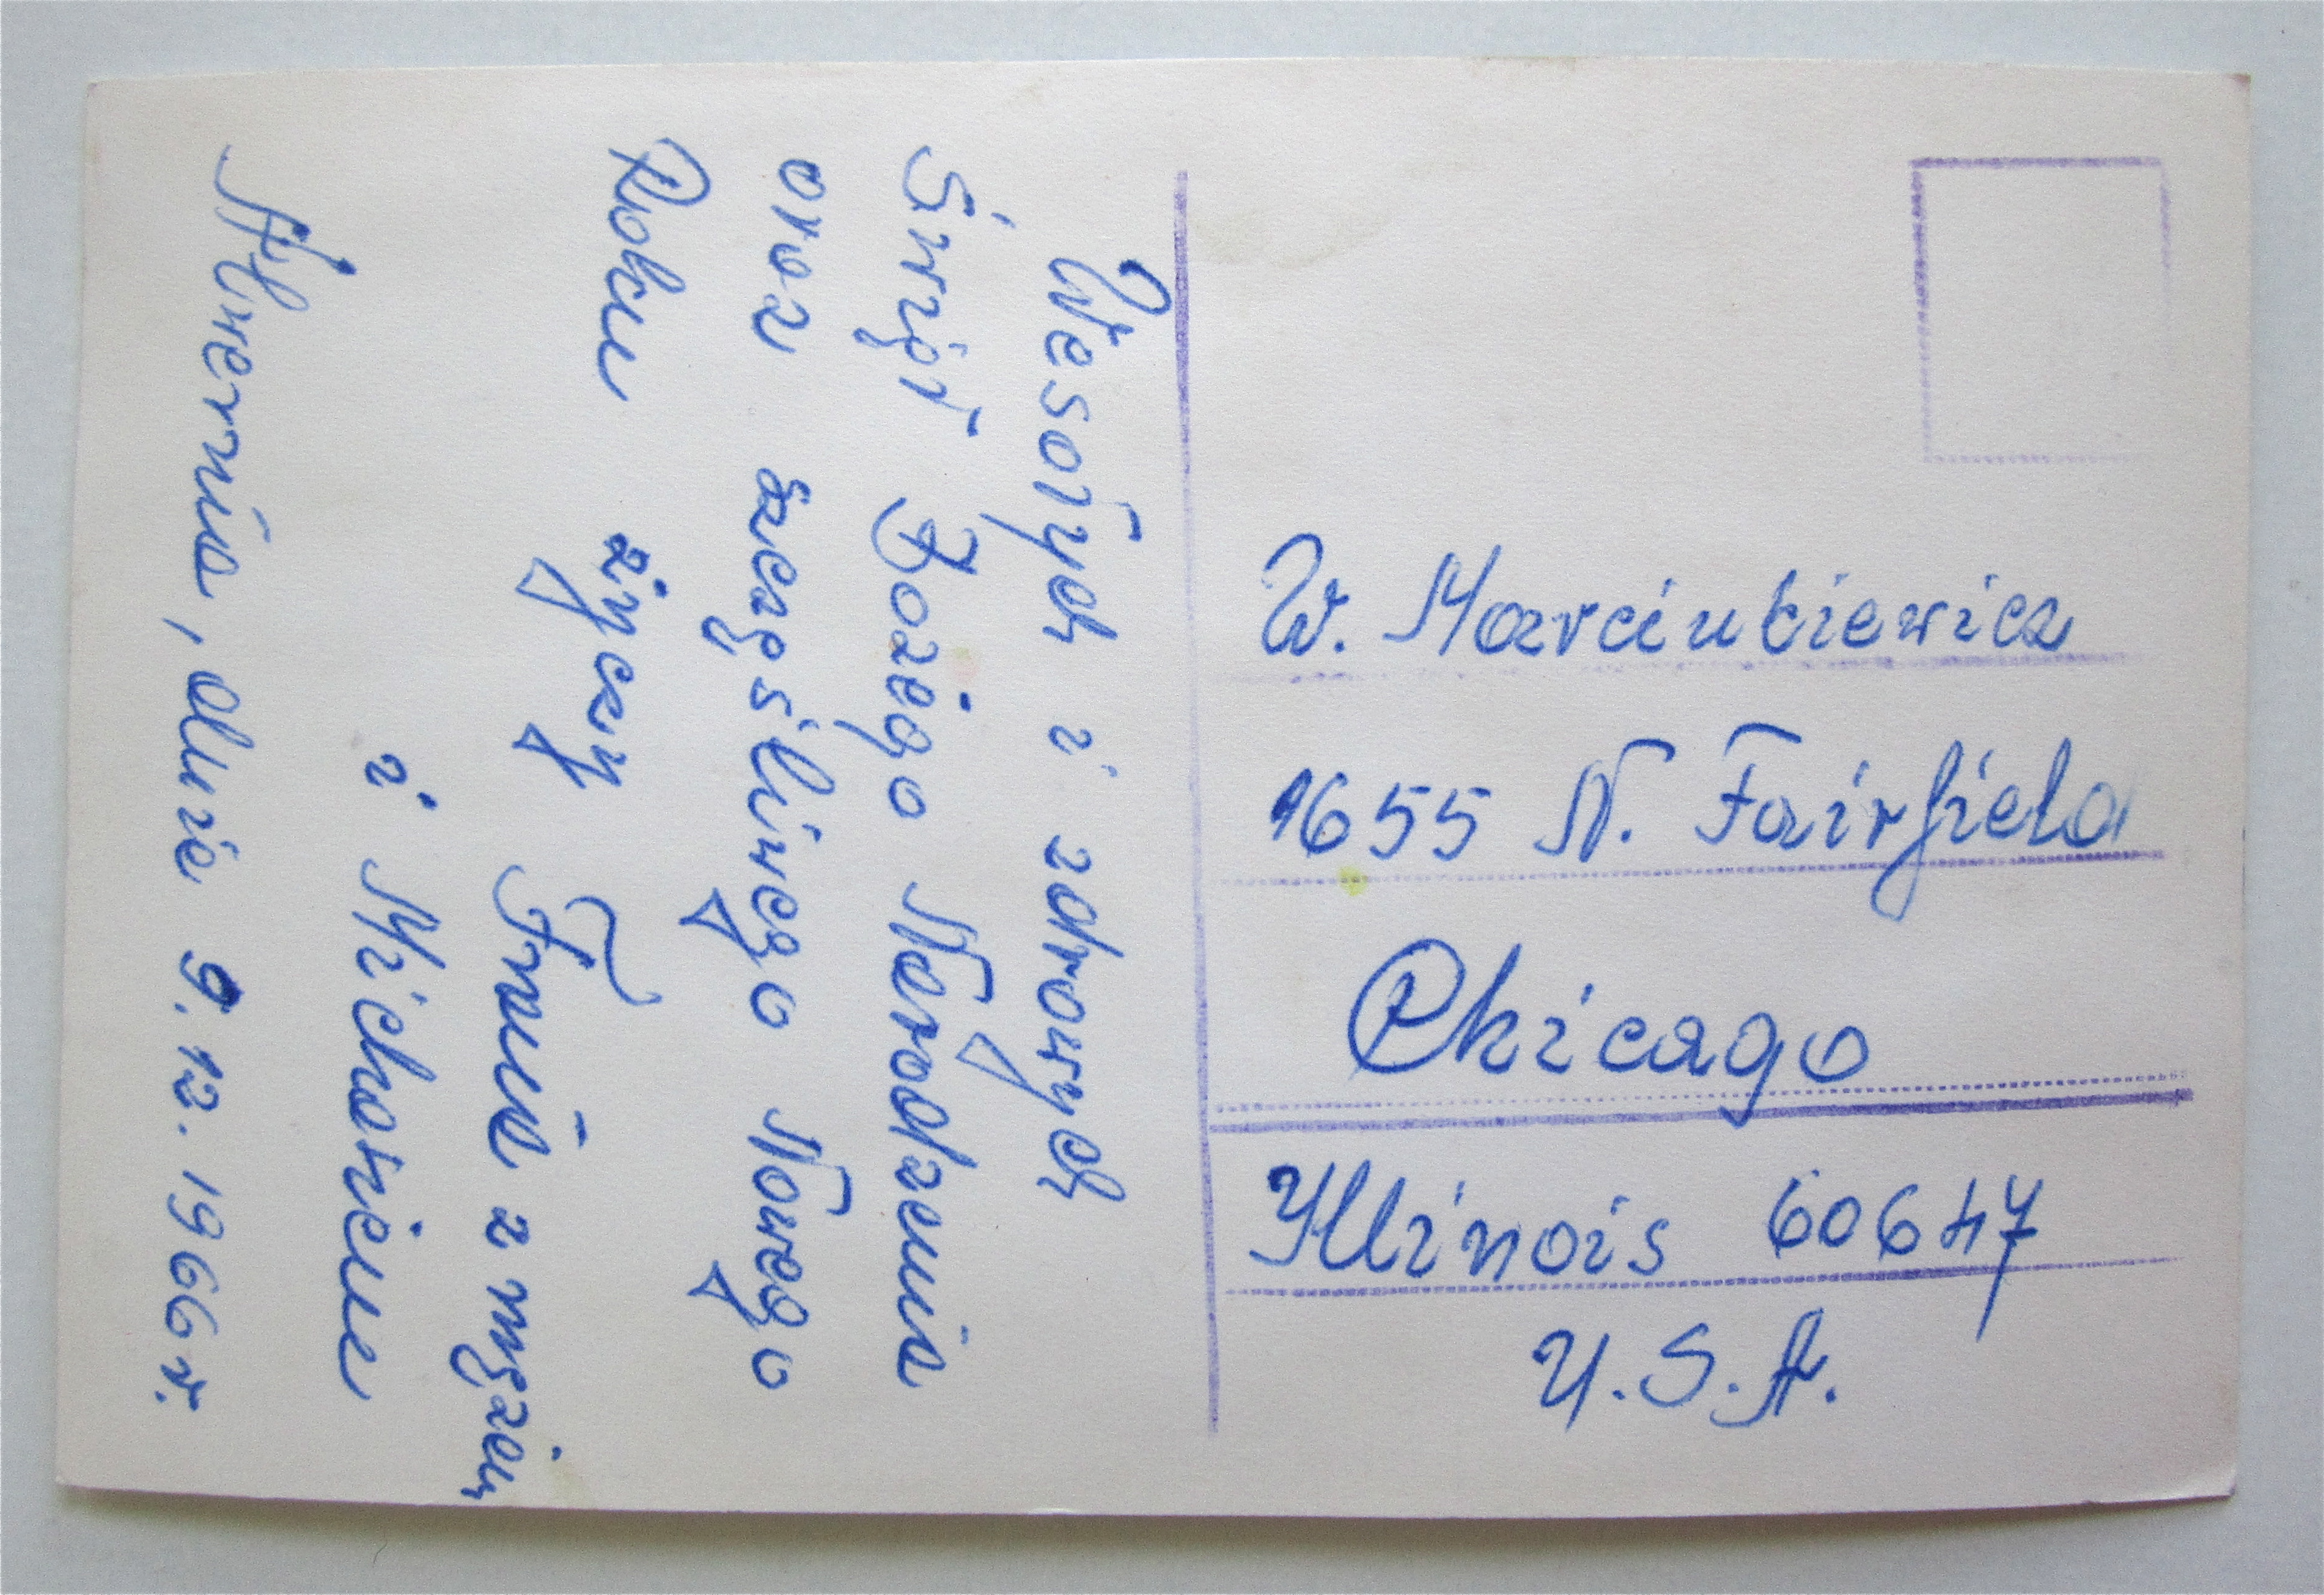 Wesołych i zdrowych
Świąt Bożego Narodzenia
oraz szczęśliwego Nowego
Roku życzy
Frania z mężem
i Michasiem
Alwernia, dnia 9.12.1966 r.
W. Marciukiewicz
1655 N. Fairfield
Chicago
Illinois 60647
U.S.A.